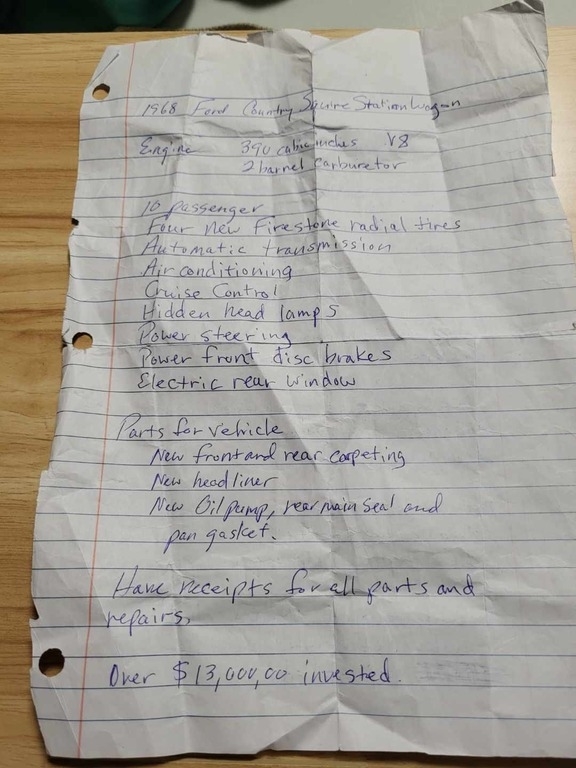 1968 Ford Country Squire Station Wagon
Engine 390 cubic inches V8
2 barrel carburetor
10 passenger
Four new Firestone radial tires
Automatic transmission
Air conditioning
Cruise Control
Hidden head lamps
Power steering
Power front disc brakes
Electric rear window
Parts for vehicle
New front and rear carpeting
New headliner
New Oil pump, rear main seal and
pan gasket.
Have receipts for all parts and
repairs,
Over $13,000,00 invested.